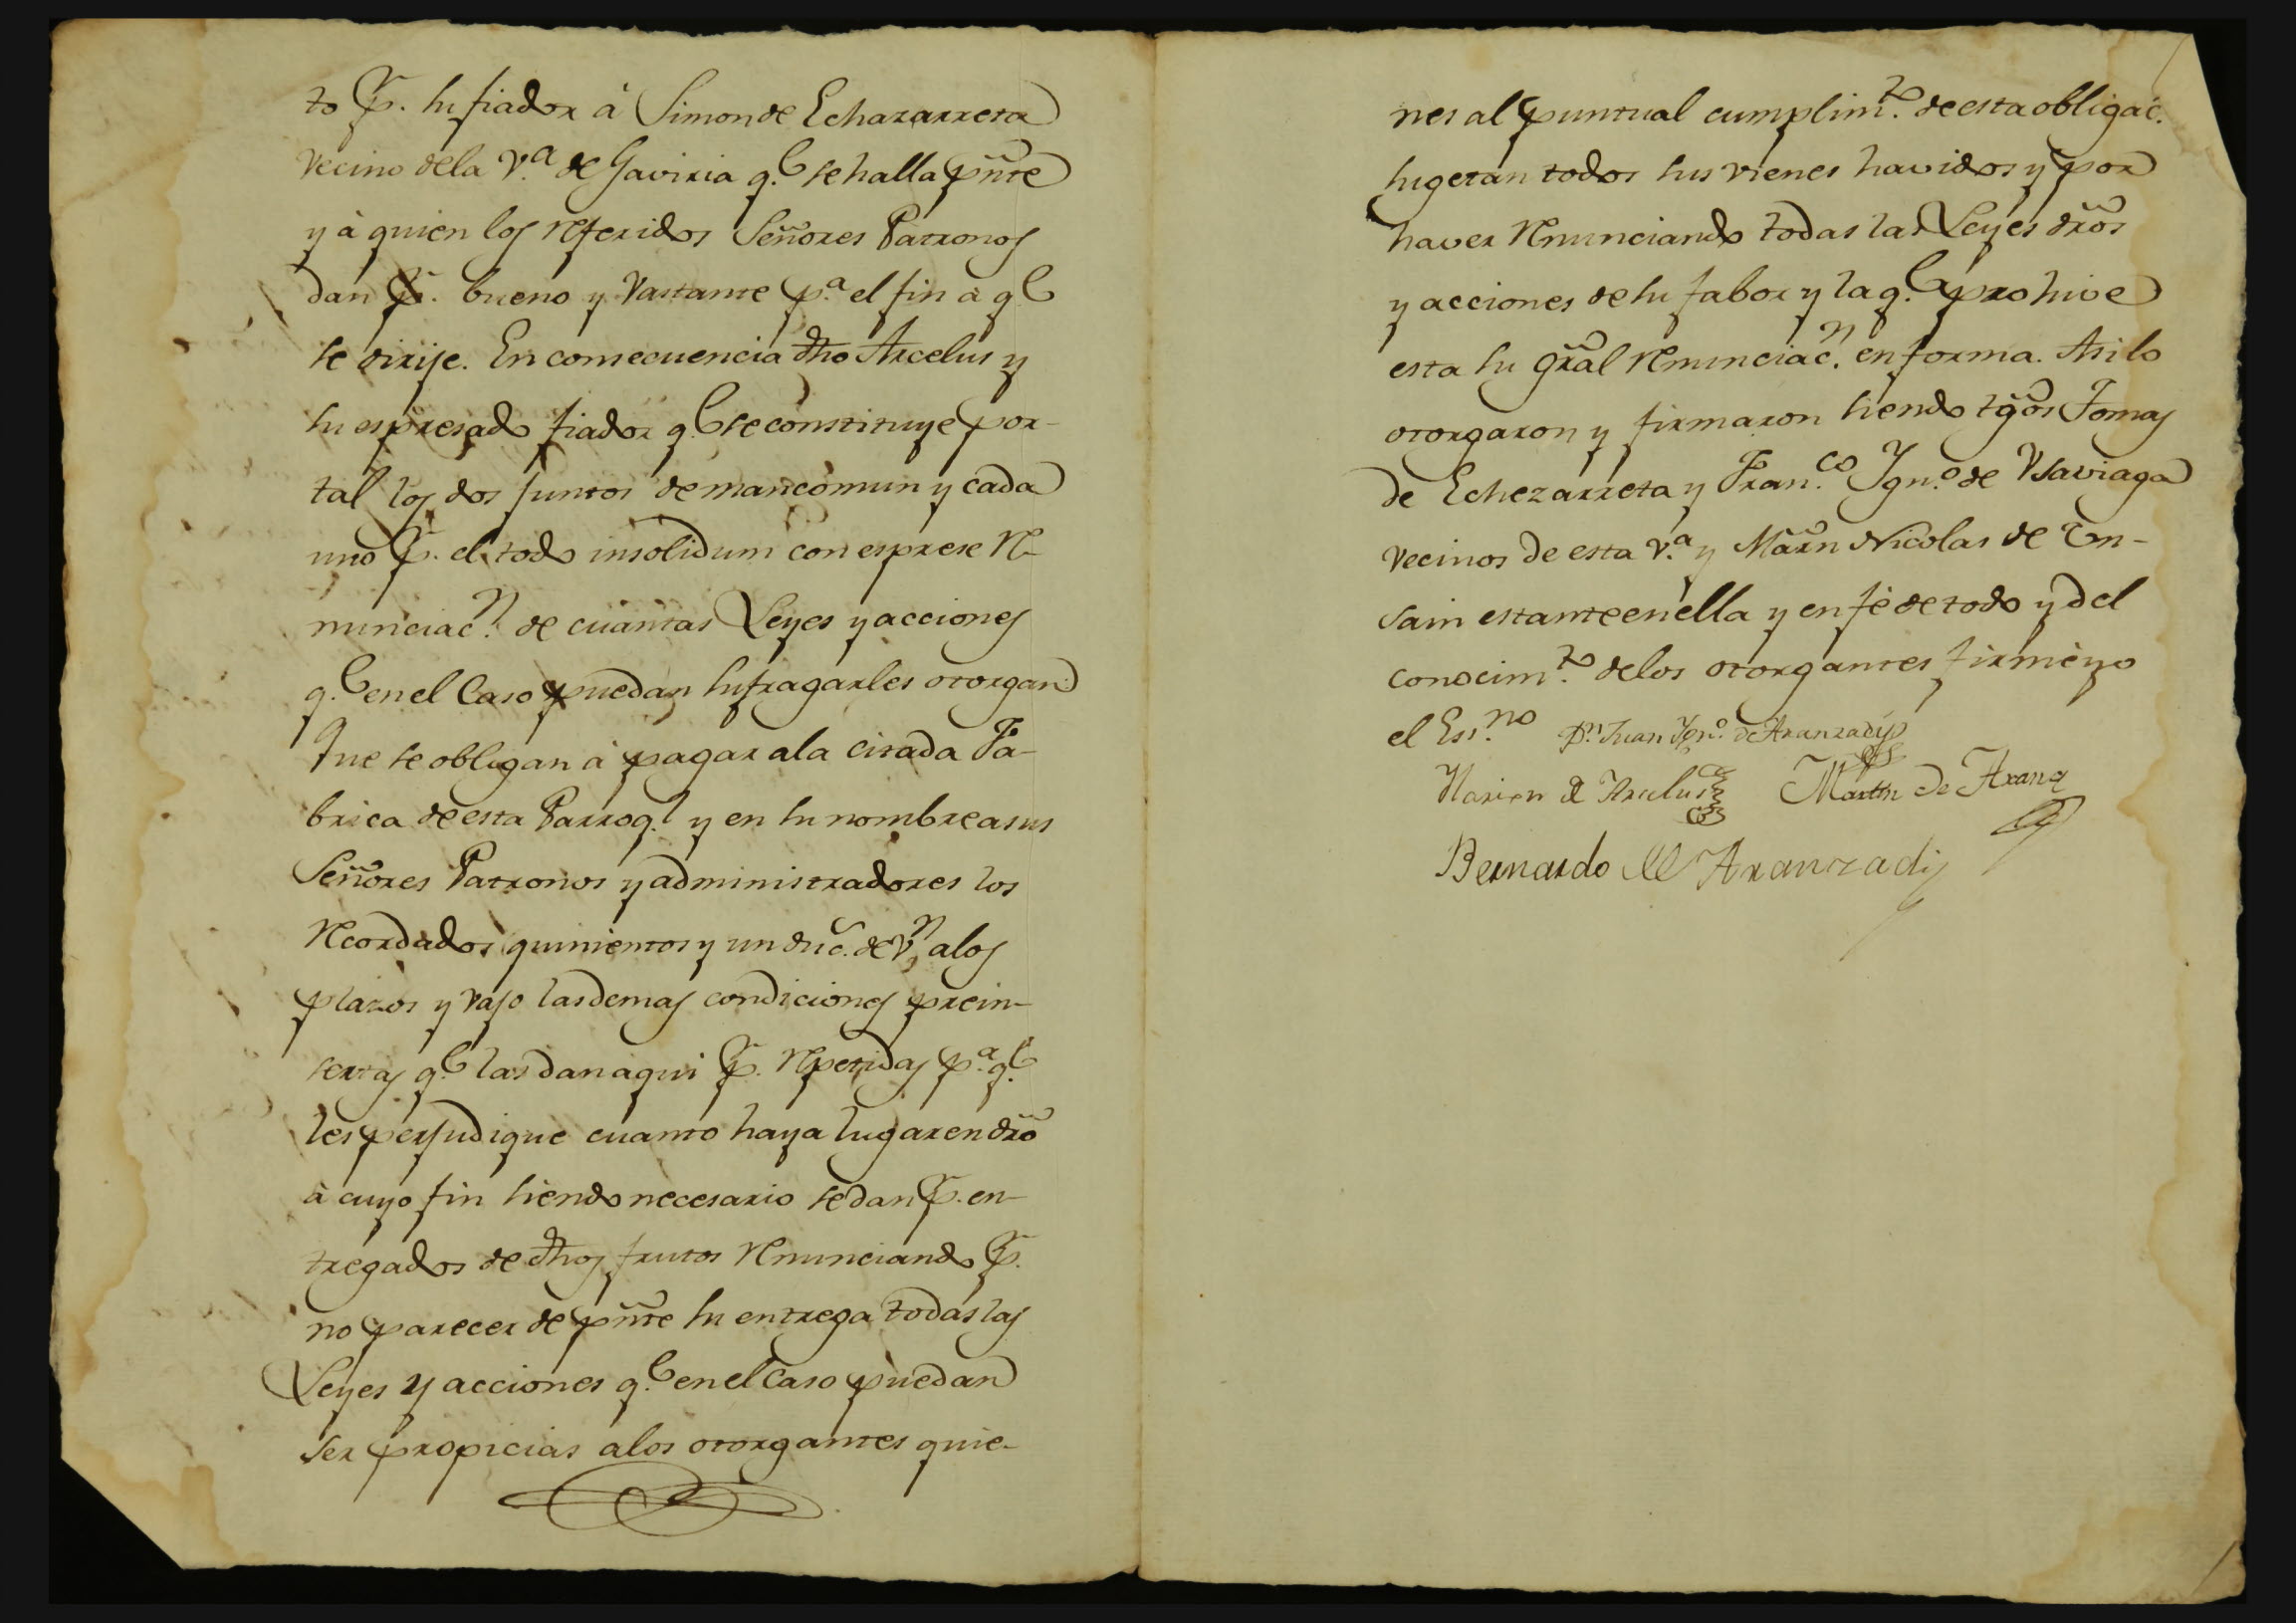 to p.r su fiador à Simon de Echazarreta
vecino dela v.a de Gaviria q.e se halla pñte
y à quien los referidos Señores Patronos
dan p.r bueno y vastante p.a el fin a q.e
se dirije. En consecuencia dho Arcelus y
su espresado fiador q.e se constituye por-
tal los dos juntos de mancomun y cada
uno p.r el todo insolidum con esprese re-
nunciac.n de cuantas Leyes y acciones
q.e en el Caso puedan sufragarles otorgan
Que se obligan à pagar ala citada Fa-
brica de esta Parroq.l y en su nombre a sus
Señores Patronos y administradores los
recordados quinientos y un duc. de v.n alos
plazos y vajo las demas condiciones prein-
sertas q.e las dan aqui p.r repetidas p.a q.e
les perjudique cuanto haya lugar en dro
à cuyo fin siendo necesario se dan p.r en-
tregados de dhos frutos renunciando p.r
no parecer de pñte su entrega todas las
Leyes y acciones q.e en el Caso puedan
ser propicias alos otorgantes quie-
nes al puntual cumplim.to de esta obligac.
sugetan todos sus vienes havidos y por
haver renunciando todas las Leyes dros
y acciones de su fabor y la q.e prohive
esta su gral renunciac.n en forma. Asi lo
otorgaron y firmaron siendo tgos Tomas
de Echezarreta y Fran.co Ygn.o de Usaviaga
vecinos de esta v.a y Marn Nicolas de En-
sain estante en ella y en fè de todo y del
conocim.to delos otorgantes firmè yo
el Ess.no D.n Juan Ygn.o de Aranzadi
de Arcelus Martin de Arana
Bernardo de Aranzadi